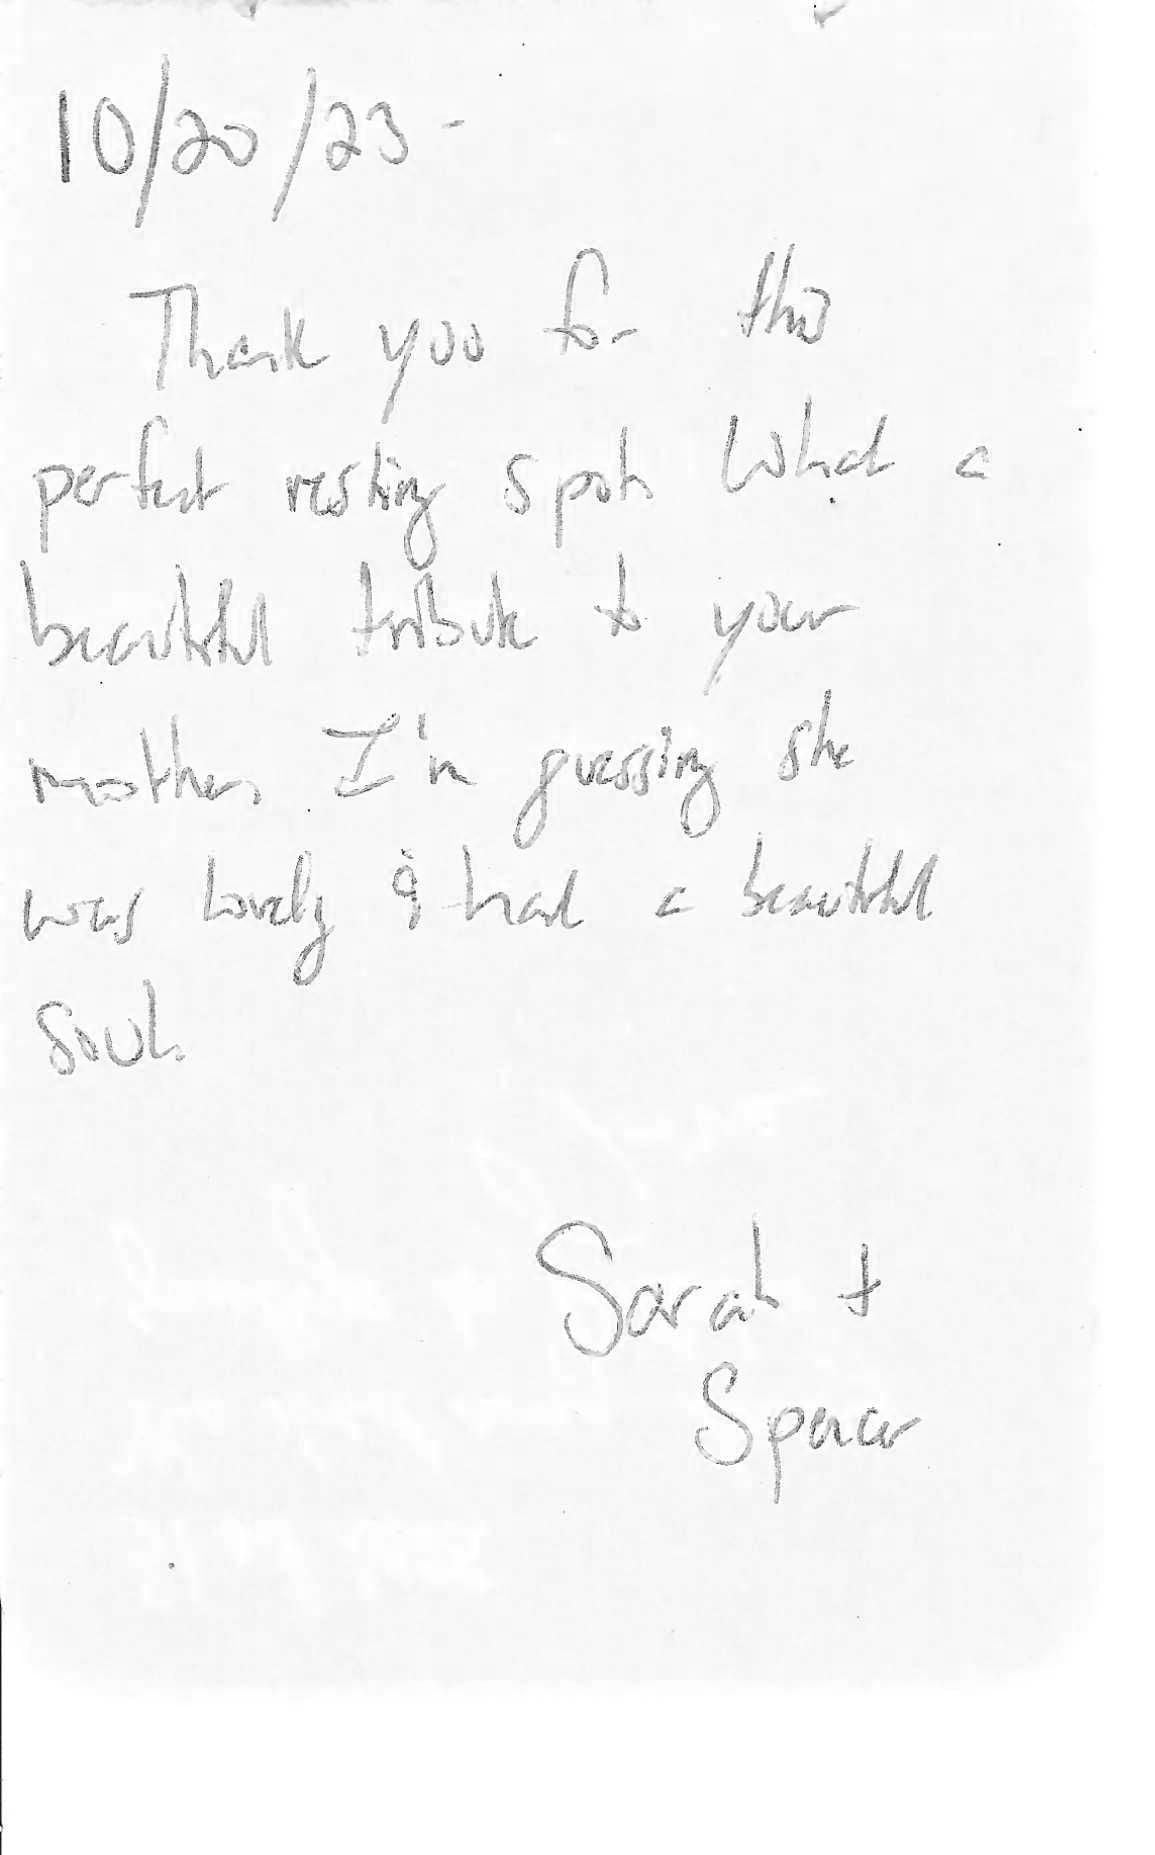 10/20/23-
Thank you for this
perfect resting spot. What a
beautiful tribute to your
mother. I'm guessing she
was lovely & had a beautiful
soul.
Sarah +
Spencer